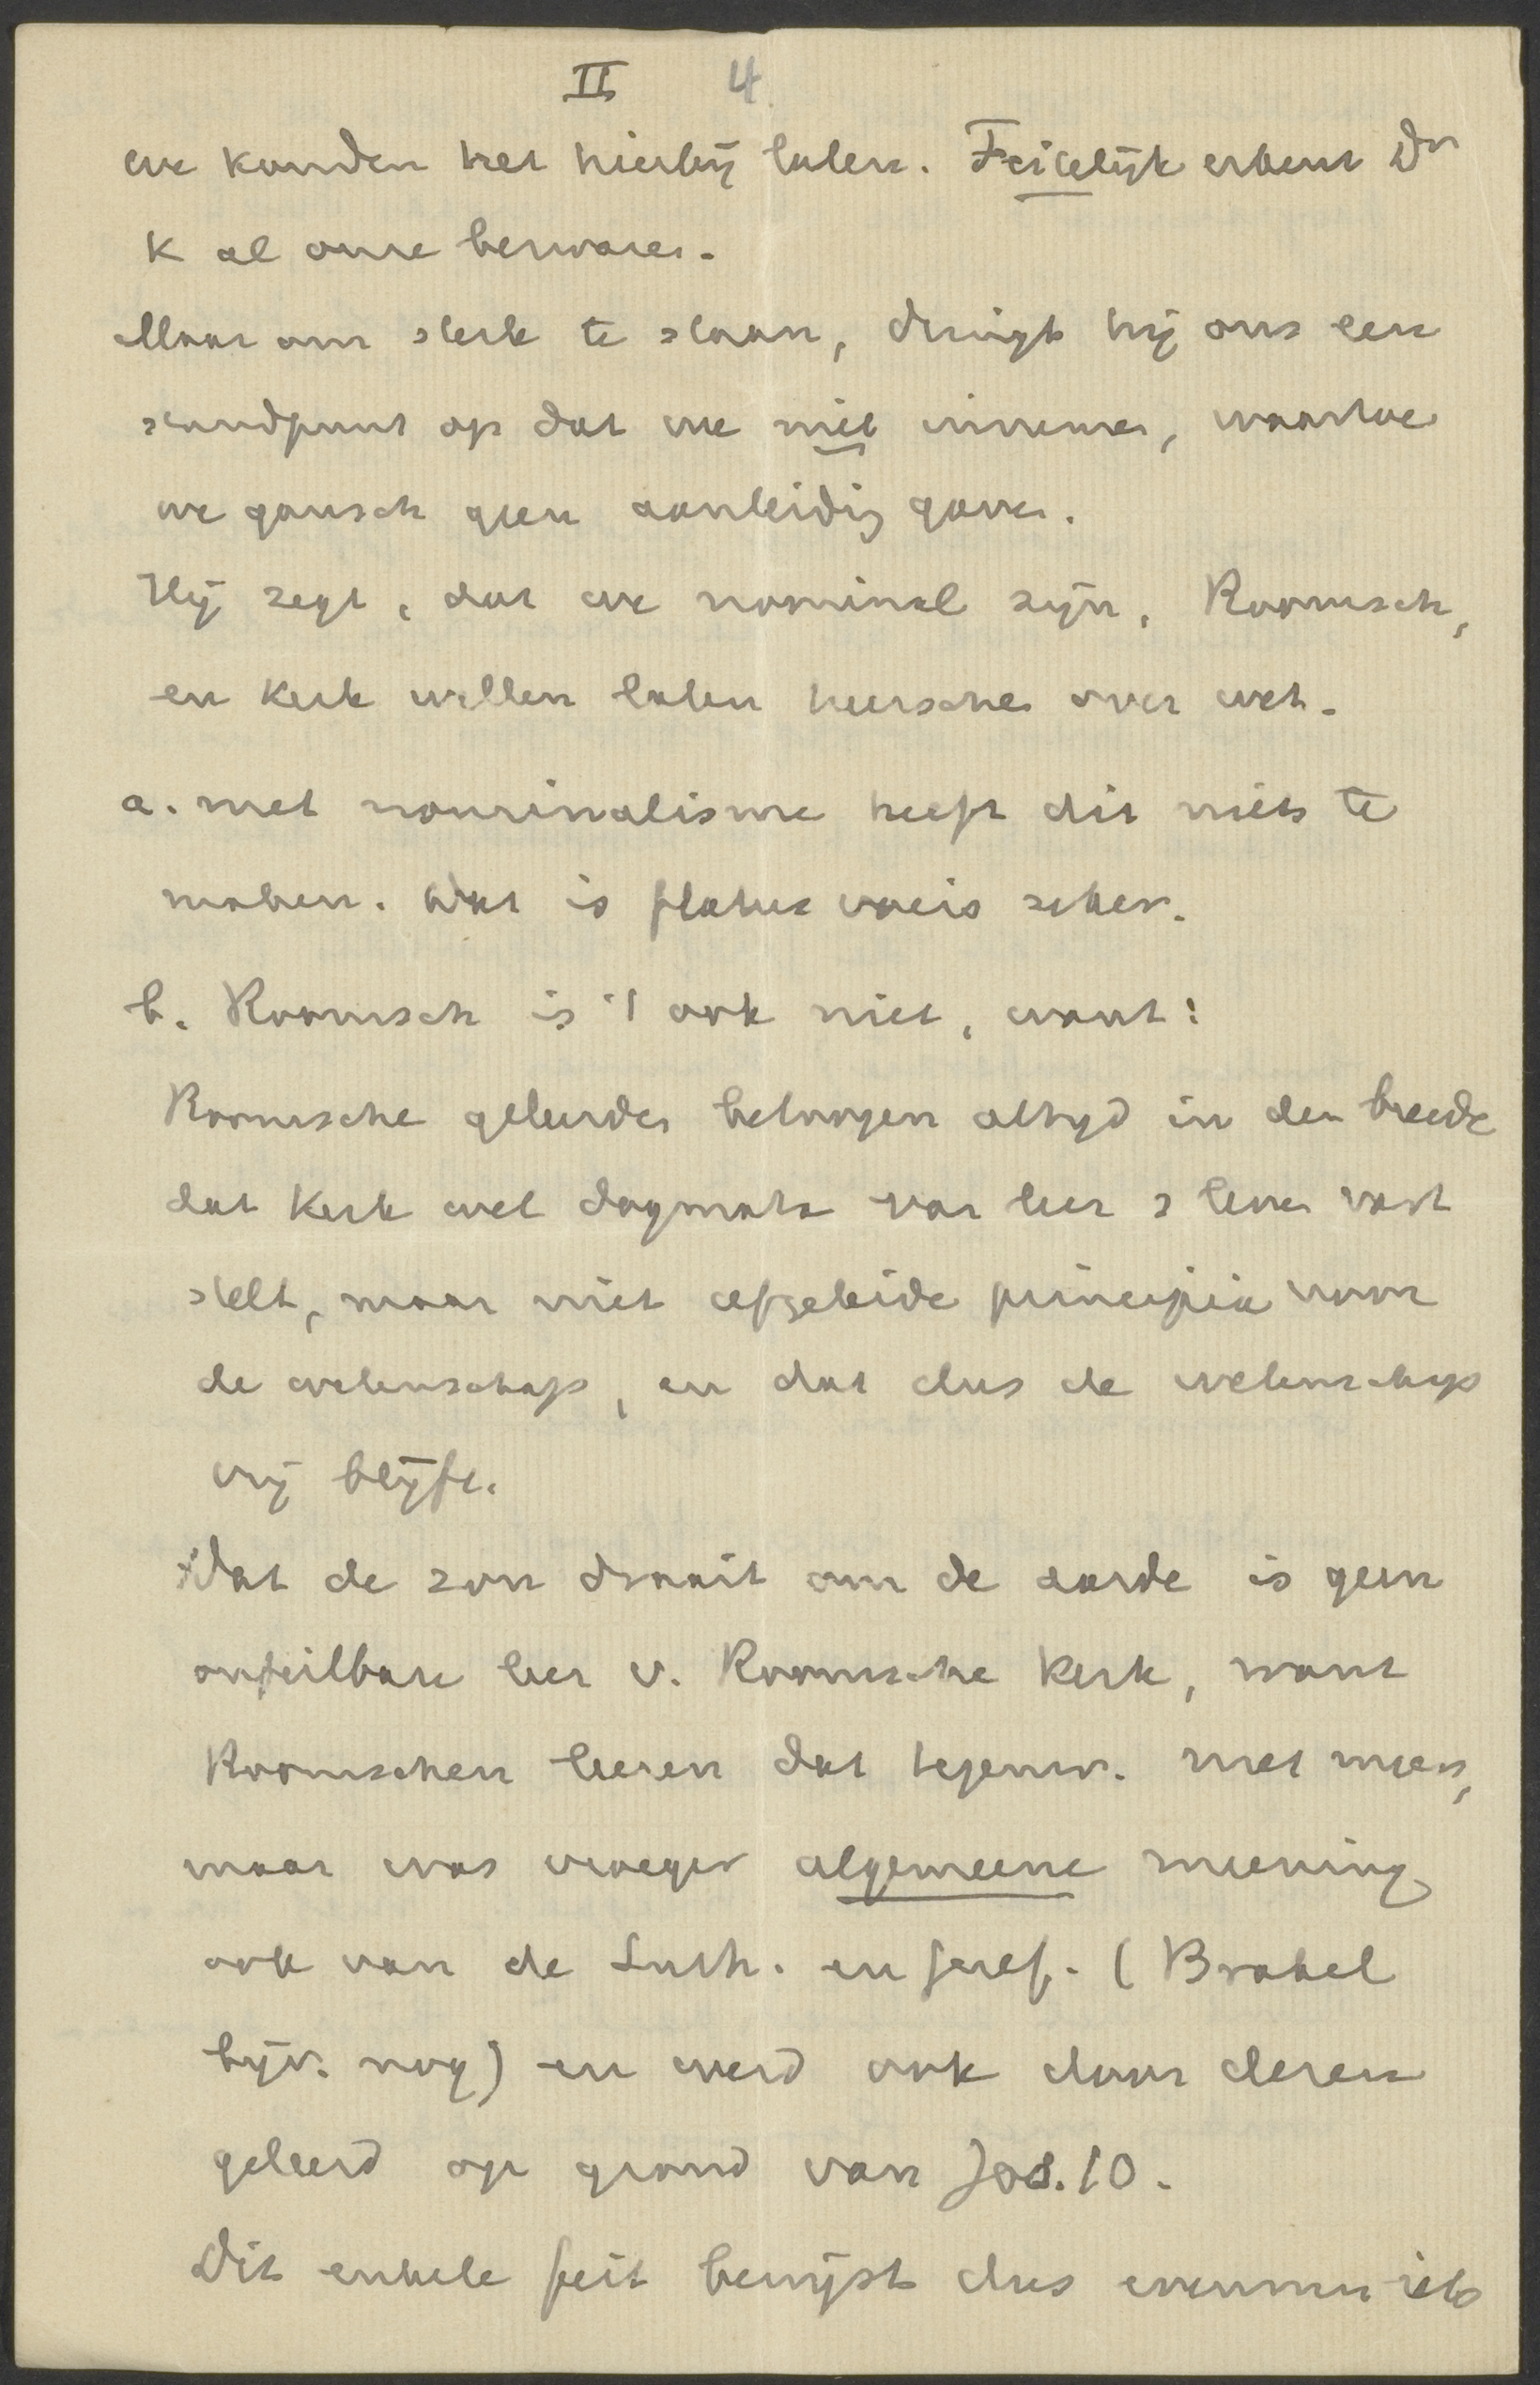 II 4
we konden het hierbij laten. Feitelijk erkent Dr
K al onze bezwaren.
Maar om sterk te staan, dringt hij ons een
standpunt op dat we niet innemen, waartoe
we gansch geen aanleiding gaven.
Hij zegt, dat we nominal zijn, Roomsch,
en Kerk willen laten heerschen over wet.
a. met nominalisme heeft dit niets te
maken. Dat is flatus vocis zeker.
b. Roomsch is 't ook niet, want:
Roomsche geleerden betoogen altijd in den breede
dat Kerk wel dogmata van leer & leven vast
stelt, maar niet afgeleide principia voor
de wetenschap, en dat dus de wetenschap
vrij blijft.
Dat de zon draait om de aarde is geen
onfeilbare leer v. Roomsche Kerk, want
Roomschen leeren dat tegenw. niet meer,
maar was vroeger algemeene meening
ook van de Luth. en Geref. (Brakel
bijv. nog) en werd ook door dezen
geleerd op grond van Joz. 10.
Dit enkele feit bewijst dus evenmin iets